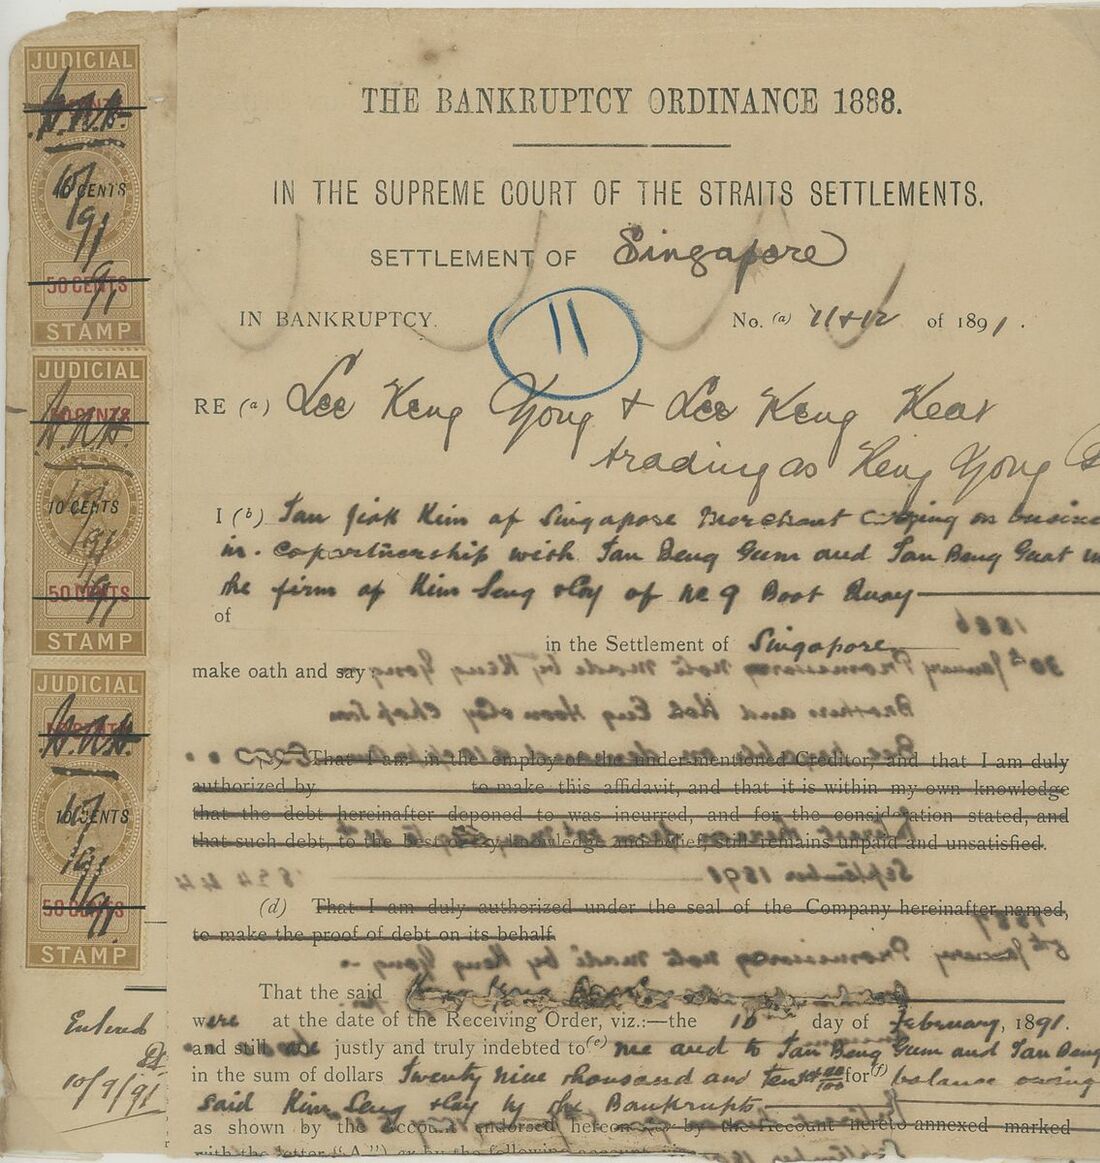 JUDICIAL
10 CENTS
50 CENTS
STAMP
JUDICIAL
50 CENTS
10 CENTS
50 CENTS
STAMP
JUDICIAL
10 CENTS
50 CENTS
STAMP
Entered
10/9/91
THE BANKRUPTCY ORDINANCE 1888.
IN THE SUPREME COURT OF THE STRAITS SETTLEMENTS.
SETTLEMENT OF Singapore
11
IN BANKRUPTCY. No. (a) 11 + 12 of 1891.
RE (a) Lee Keng Yong + Lee Keng Keat
trading as Keng Yong
I (b) Tan Jiak Kim of Singapore Merchant carrying on
in copartnership with Tan Beng Gum and Tan Beng Guat
the firm of Kim Seng & Coy of No 9 Boat Quay
of
in the Settlement of Singapore
make oath and say:
That I am in the employ of the under-mentioned Creditor, and that I am duly
authorized by to make this affidavit, and that it is within my own knowledge
that the debt hereinafter deponed to was incurred, and for the consideration stated, and
that such debt, to the best of my knowledge and belief, still remains unpaid and unsatisfied.
(d) That I am duly authorized under the seal of the Company hereinafter named,
to make the proof of debt on its behalf.
That the said
were at the date of the Receiving Order, viz.:—the 10 day of February, 1891.
and still are justly and truly indebted to (e) me and to Tan Beng Gum and Tan Beng
in the sum of dollars Twenty nine thousand and ten for (f) balance owing
said Kim Seng & Coy by the Bankrupts
as shown by the account endorsed hereon or by the Account hereto annexed marked
with the letter ("A.") or by the following account, viz.